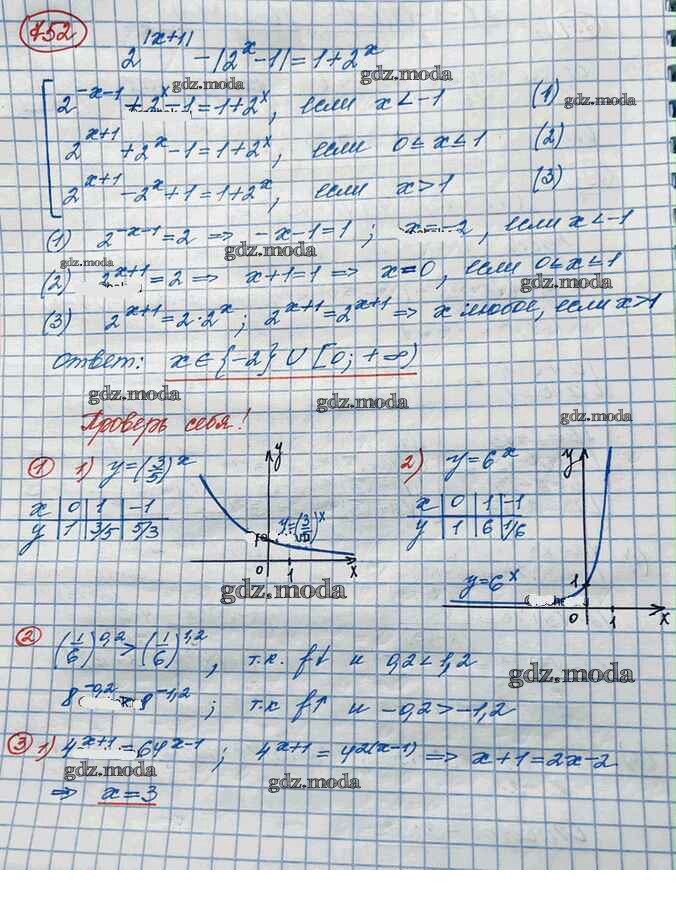 752
2^|x+1| - |2^x - 1| = 1 + 2^x
2^(-x-1) + 2^x - 1 = 1 + 2^x, если x < -1 (1)
2^(x+1) + 2^x - 1 = 1 + 2^x, если 0 ≤ x ≤ 1 (2)
2^(x+1) - 2^x + 1 = 1 + 2^x, если x > 1 (3)
(1) 2^(-x-1) = 2 => -x-1 = 1; x = -2, если x < -1
(2) 2^(x+1) = 2 => x+1 = 1 => x = 0, если 0 ≤ x ≤ 1
(3) 2^(x+1) = 2·2^x; 2^(x+1) = 2^(x+1) => x любое, если x > 1
ответ: x ∈ {-2} ∪ [0; +∞)
Проверь себя!
1 1) y = (3/5)^x 2) y = 6^x
x | 0 | 1 | -1
y | 1 | 3/5 | 5/3
y
y = (3/5)^x
1
0 1 x
x | 0 | 1 | -1
y | 1 | 6 | 1/6
y
y = 6^x
1
0 1 x
2 (1/6)^0,2 > (1/6)^1,2, т.к. f↓ и 0,2 < 1,2
8^-0,2 8^-1,2; т.к f↑ и -0,2 > -1,2
3 1) 4^(x+1) = 64^(x-1); 4^(x+1) = 4^2(x-1) => x+1 = 2x-2
=> x = 3
gdz.moda
gdz.moda
gdz.moda
gdz.moda
gdz.moda
gdz.moda
gdz.moda
gdz.moda
gdz.moda
gdz.moda
gdz.moda
gdz.moda
gdz.moda
gdz.moda